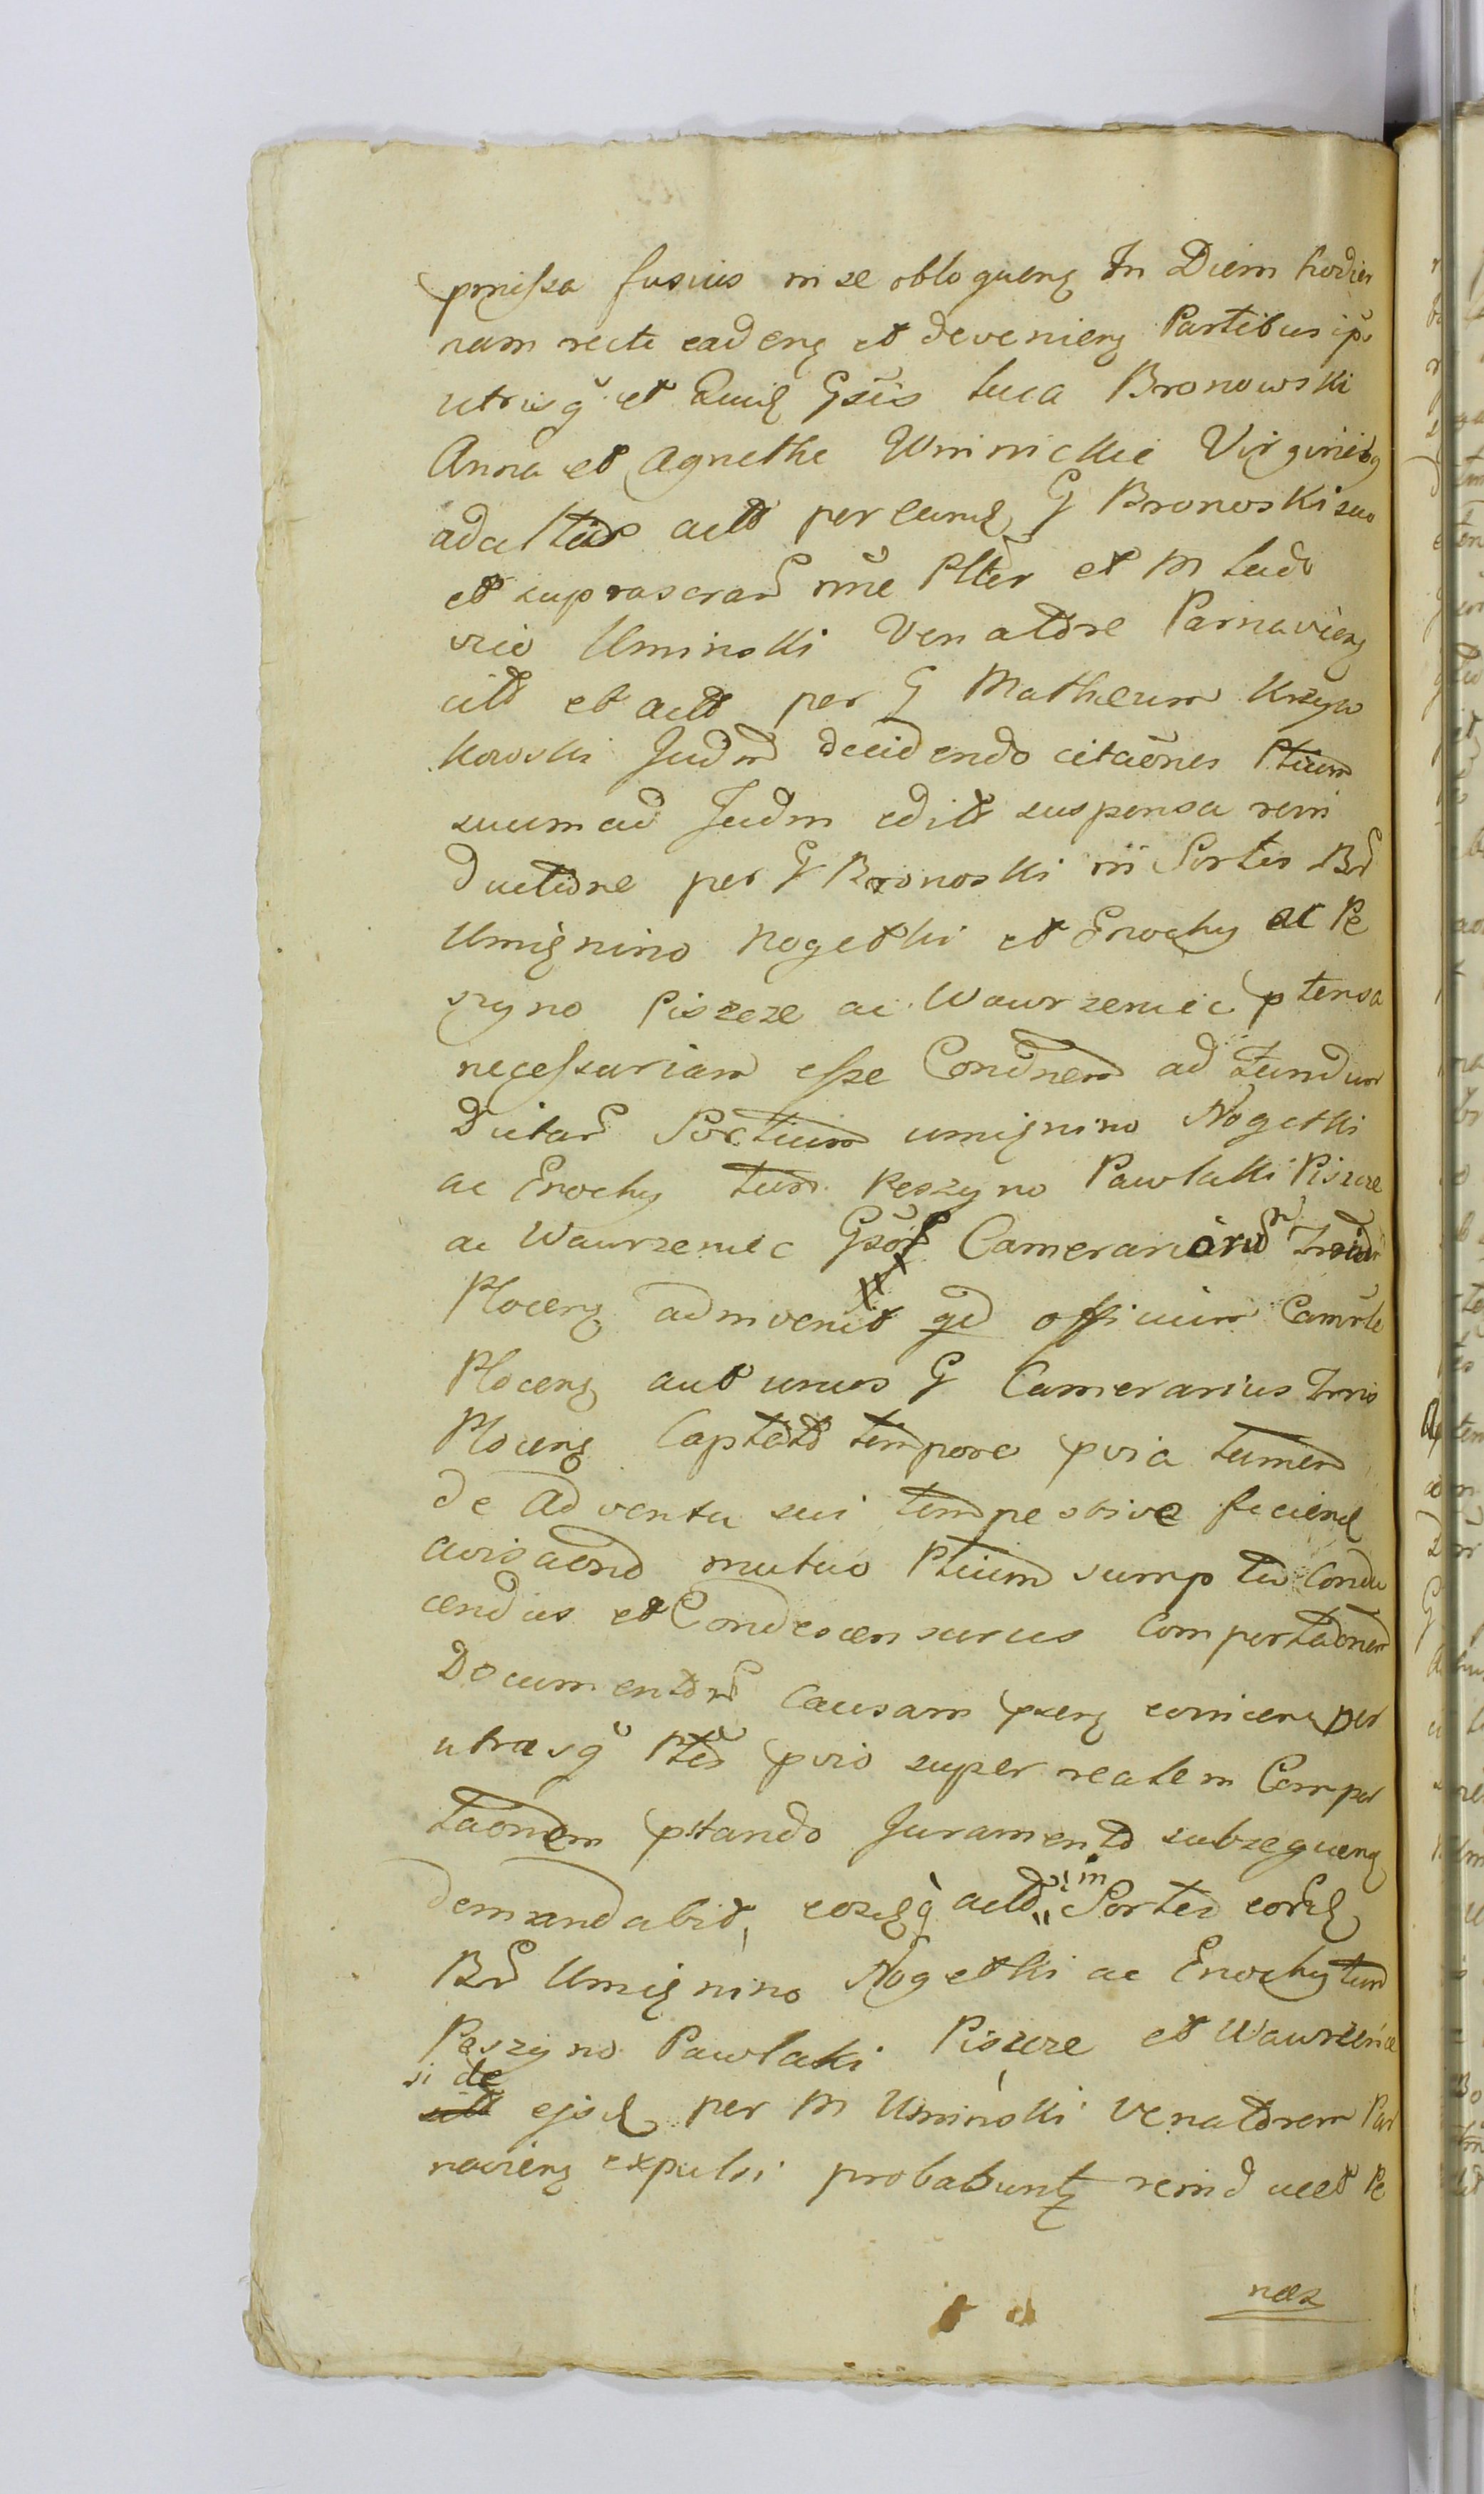 pmissa fusius in se obloquens In Diem hodier
nam recte cadens et deveniens Partibus ip̃s
utrisq̃ et Quid Gsis Luca Bronowski
Anna et Agnethe Uminickie Virginibus
adultis actt per eund G Bronoski suo
et suprascrar nñe Plter et M Ludo
vico Uminski Venatore Parnaviens
citt et actt per G Matheum Krzyw
kowski Judm decidendo citaõnes Ptium
suum ad Judm edítt suspensa rein
ductione per G Bronoski in Sortes Br
Umignino Nogetki et Enochy ac Pe
szyno Piszcze ac Wawrzeniec ptensa
necessariam esse Condnem ad Fundum
Dictar Sortium umignino Nogetki
ac Enochy tum Peszyno Pawlaki Piszcze
ac Wawrzeniec Gsor Camerariorum
Plocens adinvenit qd officium Camrle
Plocens aut unus G Camerarius Trris
Plocens Captato tempore pvia tamen
de Adventu sui tempestive faciend
avisaone mutuo Ptium sumptu Condu
cendus et Condescensurus Comportaonem
Documentor Causam psens concern per
utrasq̃ Ptes pvio super realem Compor
taonem pstando Juramento subsequens
demandabit, eosdq̃ actt si in Sortes eord
Br Umignino Nogetki ac Enochy tum
Peszyno Pawlaki Piszcze et Wawrzeniec
si de
ejsd per M Uminski Venatorem Par
naviens expulsi probabuntur reinducet Pe
næs